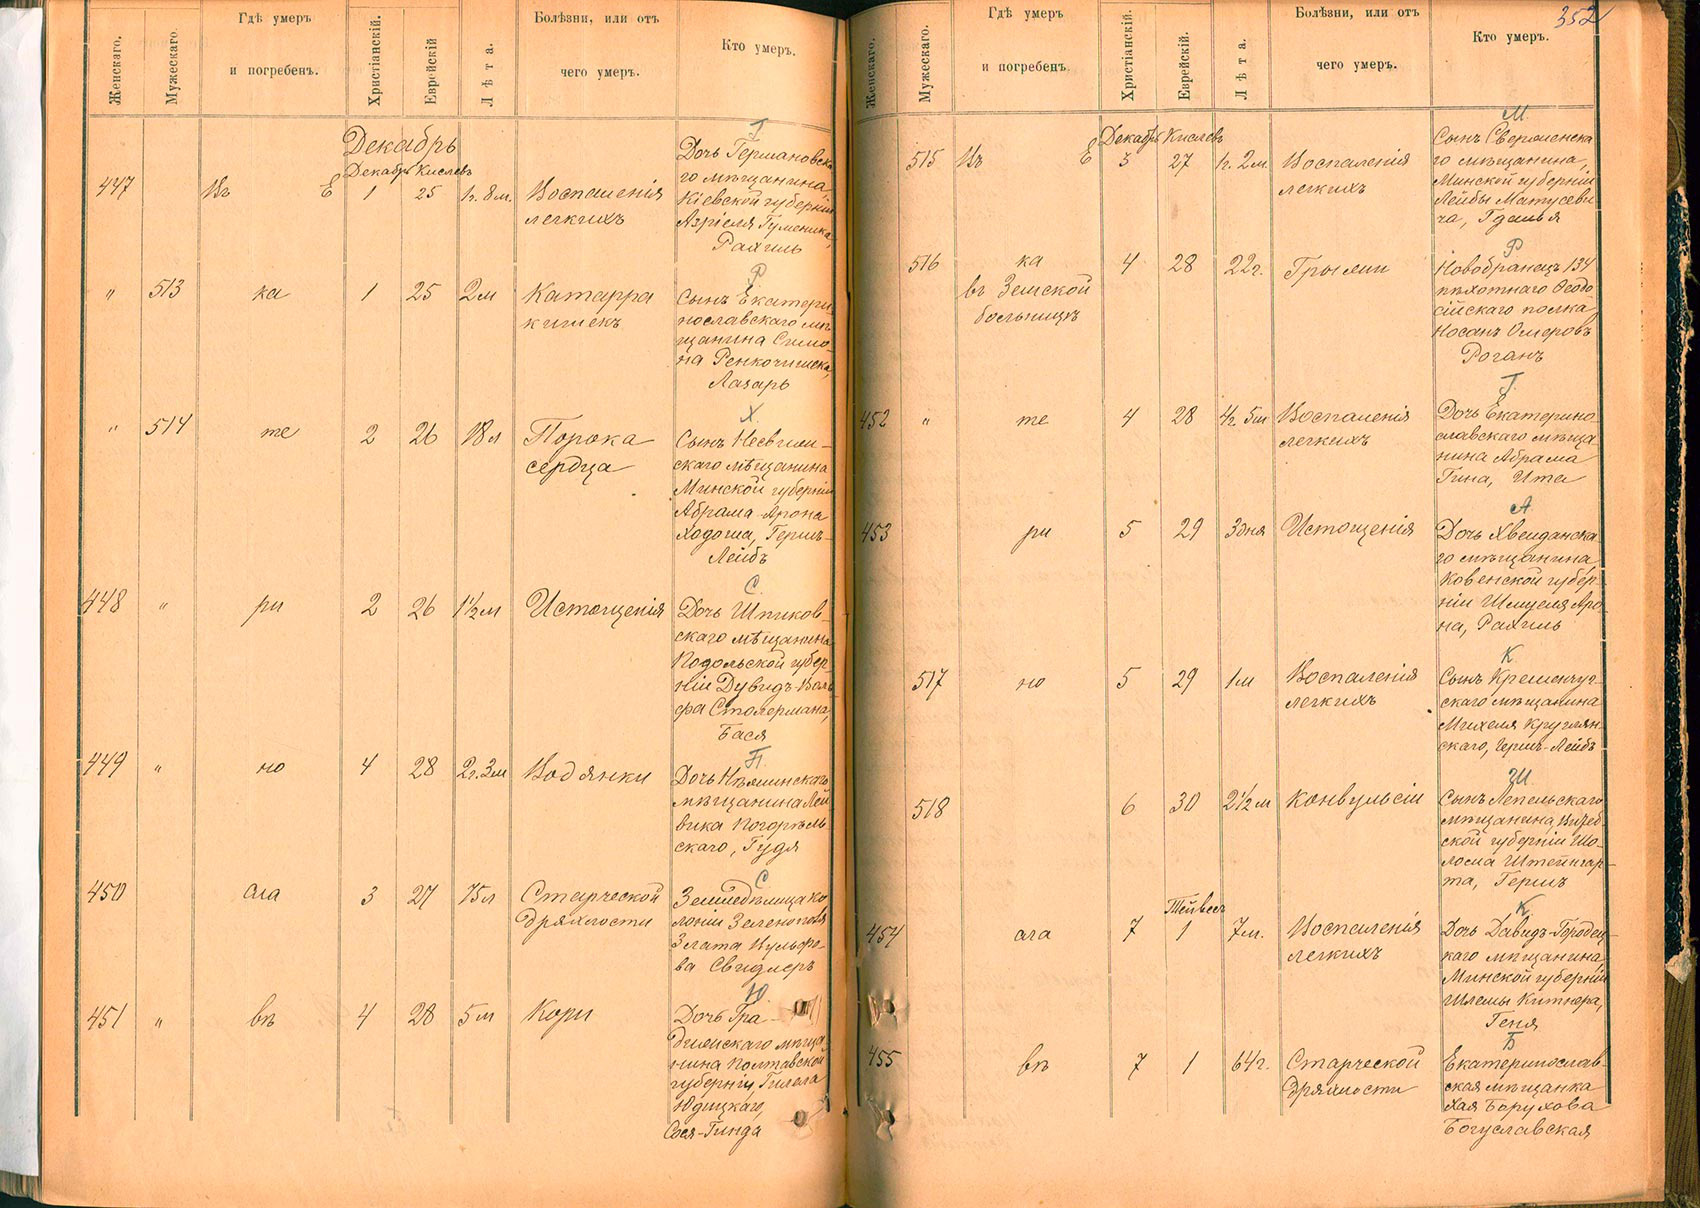 Женскаго.
Мужескаго.
Гдѣ умеръ
и погребенъ.
Христіанскій.
Еврейскій
Лѣта.
Болѣзни, или отъ
чего умеръ.
Кто умеръ.
Декабрь
Декабрь Кислевъ
447 Въ Е 1 25 1г. 8м. Воспаленія
легкихъ
Г
Дочь Германовска
го мѣщанина,
Кіевской губерніи
Азріеля Гуменика,
Рахиль
" 513 ка 1 25 2м Катарра
кишекъ
Р
Сынъ Екатери
нославскаго мѣ
щанина Симо
на
Лазарь
" 514 те 2 26 18л Порока
сердца
Х
Сынъ Несвиж
скаго мѣщанина
Минской губерніи
Абрама-Арона
Ходоша, Герш-
Лейбъ
448 " ри 2 26 1½м Истощенія
С
Дочь Шпиков
скаго мѣщанина
Подольской губер
ніи Дувидъ-Воль
фа Столермана,
Бася
449 " но 4 28 2г. 3м Водянки
П
Дочь
мѣщанина Лей
вика Погорѣль
скаго, Гудя
450 сла 3 27 75л Старческой
дряхлости
С
Земледѣлица ко
лоніи Зеленополя
Злата Вульфо
ва Свидлеръ
451 " въ 4 28 5м Кори
Ю
Дочь Гра-
дижскаго мѣща
нина Полтавской
губерніи, Гилела
Юдицкаго,
Сося-Гинда
352
Женскаго.
Мужескаго.
Гдѣ умеръ
и погребенъ.
Христіанскій.
Еврейскій.
Лѣта.
Болѣзни, или отъ
чего умеръ.
Кто умеръ.
Декабрь Кислевъ
515 Въ Е 3 27 1г. 2м. Воспаленія
легкихъ
М.
Сынъ
го мѣщанина,
Минской губерніи
Лейбы Матусеви
ча, Гдалья
516 ка 4 28 22г. Грыжи
въ Земской
больницѣ
Р
Новобранецъ 134
пѣхотнаго Ѳеодо
сійскаго полка
Носанъ Омеровъ
Роганъ
452 " те 4 28 4г. 5м Воспаленія
легкихъ
Г.
Дочь Екатерино
славскаго мѣща
нина Абрама
Гина, Ита
453 ри 5 29 3дня Истощенія
А
Дочь Хвейданска
го мѣщанина,
Ковенской губер
ніи Шмуеля Аро
на, Рахиль
517 но 5 29 1м Воспаленія
легкихъ
К
Сынъ Кременчуг-
скаго мѣщанина
Михеля Круглян
скаго, Герш-Лейбъ
518 6 30 2½м Конвульсіи
Ш
Сынъ Лепельскаго
мѣщанина, Витеб
ской губерніи Шо
лома Штейнгар-
та, Гершъ
Тейвесъ
454 сла 7 1 7м. Воспаленія
легкихъ
К
Дочь Давидъ-Городец-
каго мѣщанина,
Минской губерніи
Шлемы Китнера,
Геня
455 въ 7 1 64г. Старческой
дряхлости
Б
Екатеринослав-
ская мѣщанка
Хая Борухова
Богуславская